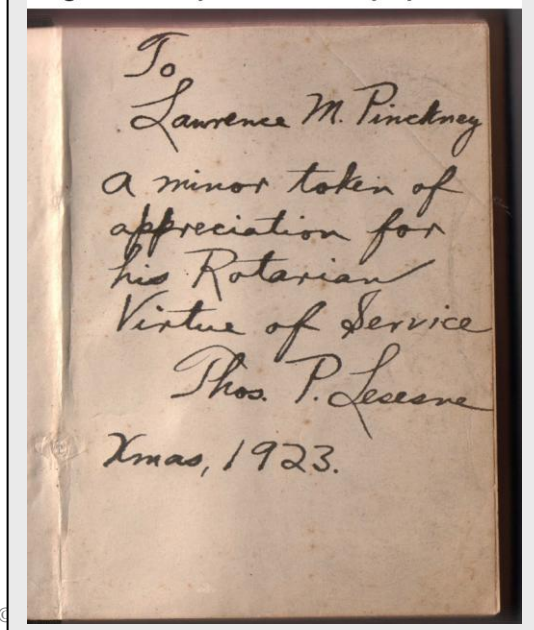 To
Lawrence M. Pinckney
a minor token of
appreciation for
his Rotarian
Virtue of Service
Thos. P. Lesesne
Xmas, 1923.
©